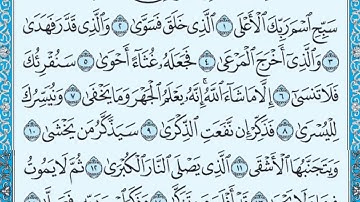 سَبِّحِ اسْمَ رَبِّكَ الْأَعْلَى ١ الَّذِي خَلَقَ فَسَوَّىٰ ٢ وَالَّذِي قَدَّرَ فَهَدَىٰ
٣ وَالَّذِي أَخْرَجَ الْمَرْعَىٰ ٤ فَجَعَلَهُ غُثَاءً أَحْوَىٰ ٥ سَنُقْرِئُكَ
فَلَا تَنسَىٰ ٦ إِلَّا مَا شَاءَ اللَّهُ إِنَّهُ يَعْلَمُ الْجَهْرَ وَمَا يَخْفَىٰ ٧ وَنُيَسِّرُكَ
لِلْيُسْرَىٰ ٨ فَذَكِّرْ إِن نَّفَعَتِ الذِّكْرَىٰ ٩ سَيَذَّكَّرُ مَن يَخْشَىٰ ١٠
وَيَتَجَنَّبُهَا الْأَشْقَى ١١ الَّذِي يَصْلَى النَّارَ الْكُبْرَىٰ ١٢ ثُمَّ لَا يَمُوتُ